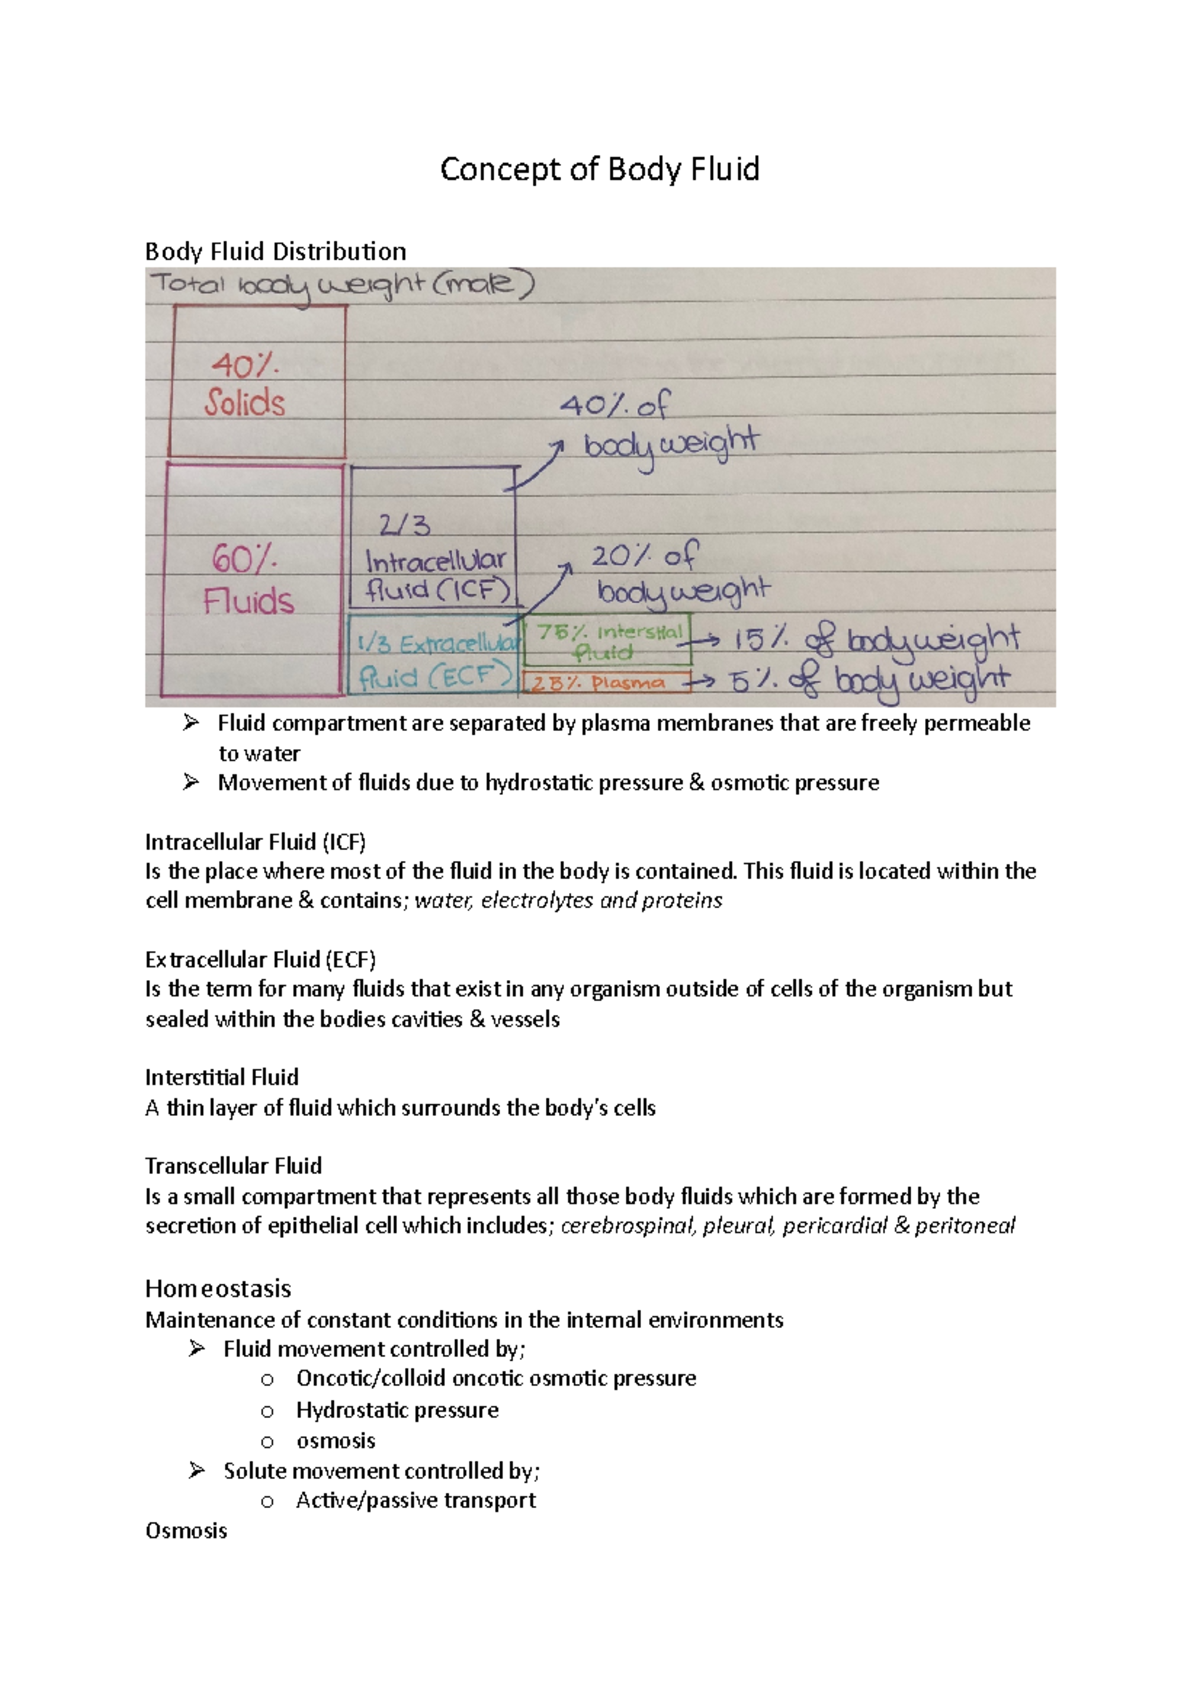 Concept of Body Fluid
Body Fluid Distribution
Total body weight (male)
40%
Solids
40% of
body weight
60%
Fluids
2/3
Intracellular
fluid (ICF)
20% of
body weight
1/3 Extracellular
fluid (ECF)
75% interstitial
fluid
15% of body weight
25% Plasma
5% of body weight
➢ Fluid compartment are separated by plasma membranes that are freely permeable
to water
➢ Movement of fluids due to hydrostatic pressure & osmotic pressure
Intracellular Fluid (ICF)
Is the place where most of the fluid in the body is contained. This fluid is located within the
cell membrane & contains; water, electrolytes and proteins
Extracellular Fluid (ECF)
Is the term for many fluids that exist in any organism outside of cells of the organism but
sealed within the bodies cavities & vessels
Interstitial Fluid
A thin layer of fluid which surrounds the body's cells
Transcellular Fluid
Is a small compartment that represents all those body fluids which are formed by the
secretion of epithelial cell which includes; cerebrospinal, pleural, pericardial & peritoneal
Homeostasis
Maintenance of constant conditions in the internal environments
➢ Fluid movement controlled by;
o Oncotic/colloid oncotic osmotic pressure
o Hydrostatic pressure
o osmosis
➢ Solute movement controlled by;
o Active/passive transport
Osmosis